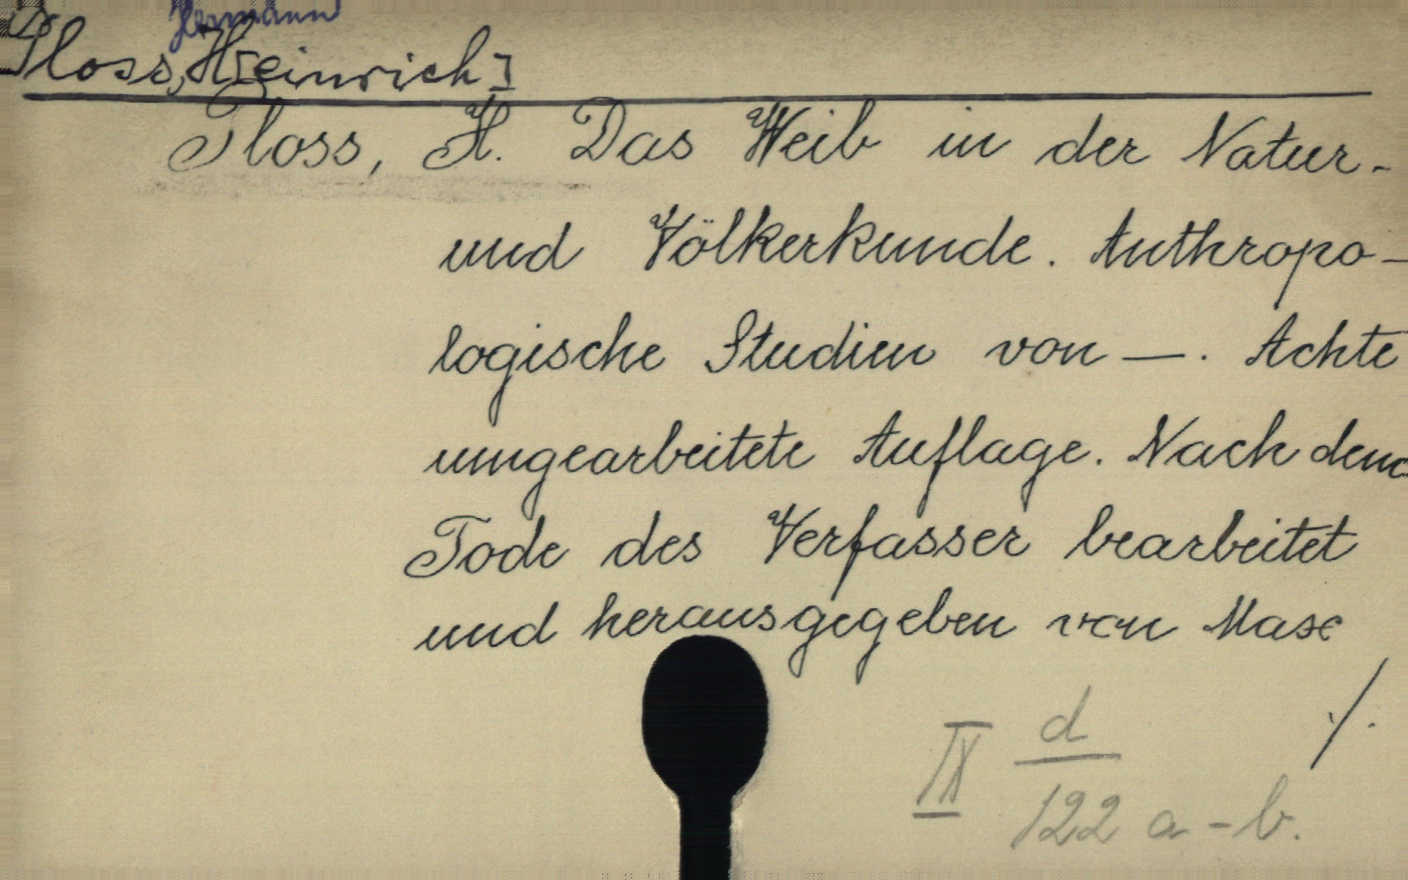 Hermann
Ploss, H[einrich]
Ploss, H. Das Weib in der Natur-
und Völkerkunde. Anthropo-
logische Studien von —. Achte
umgearbeitete Auflage. Nach dem
Tode des Verfasser bearbeitet
und herausgegeben von Max
./.
IX d
122 a-b.